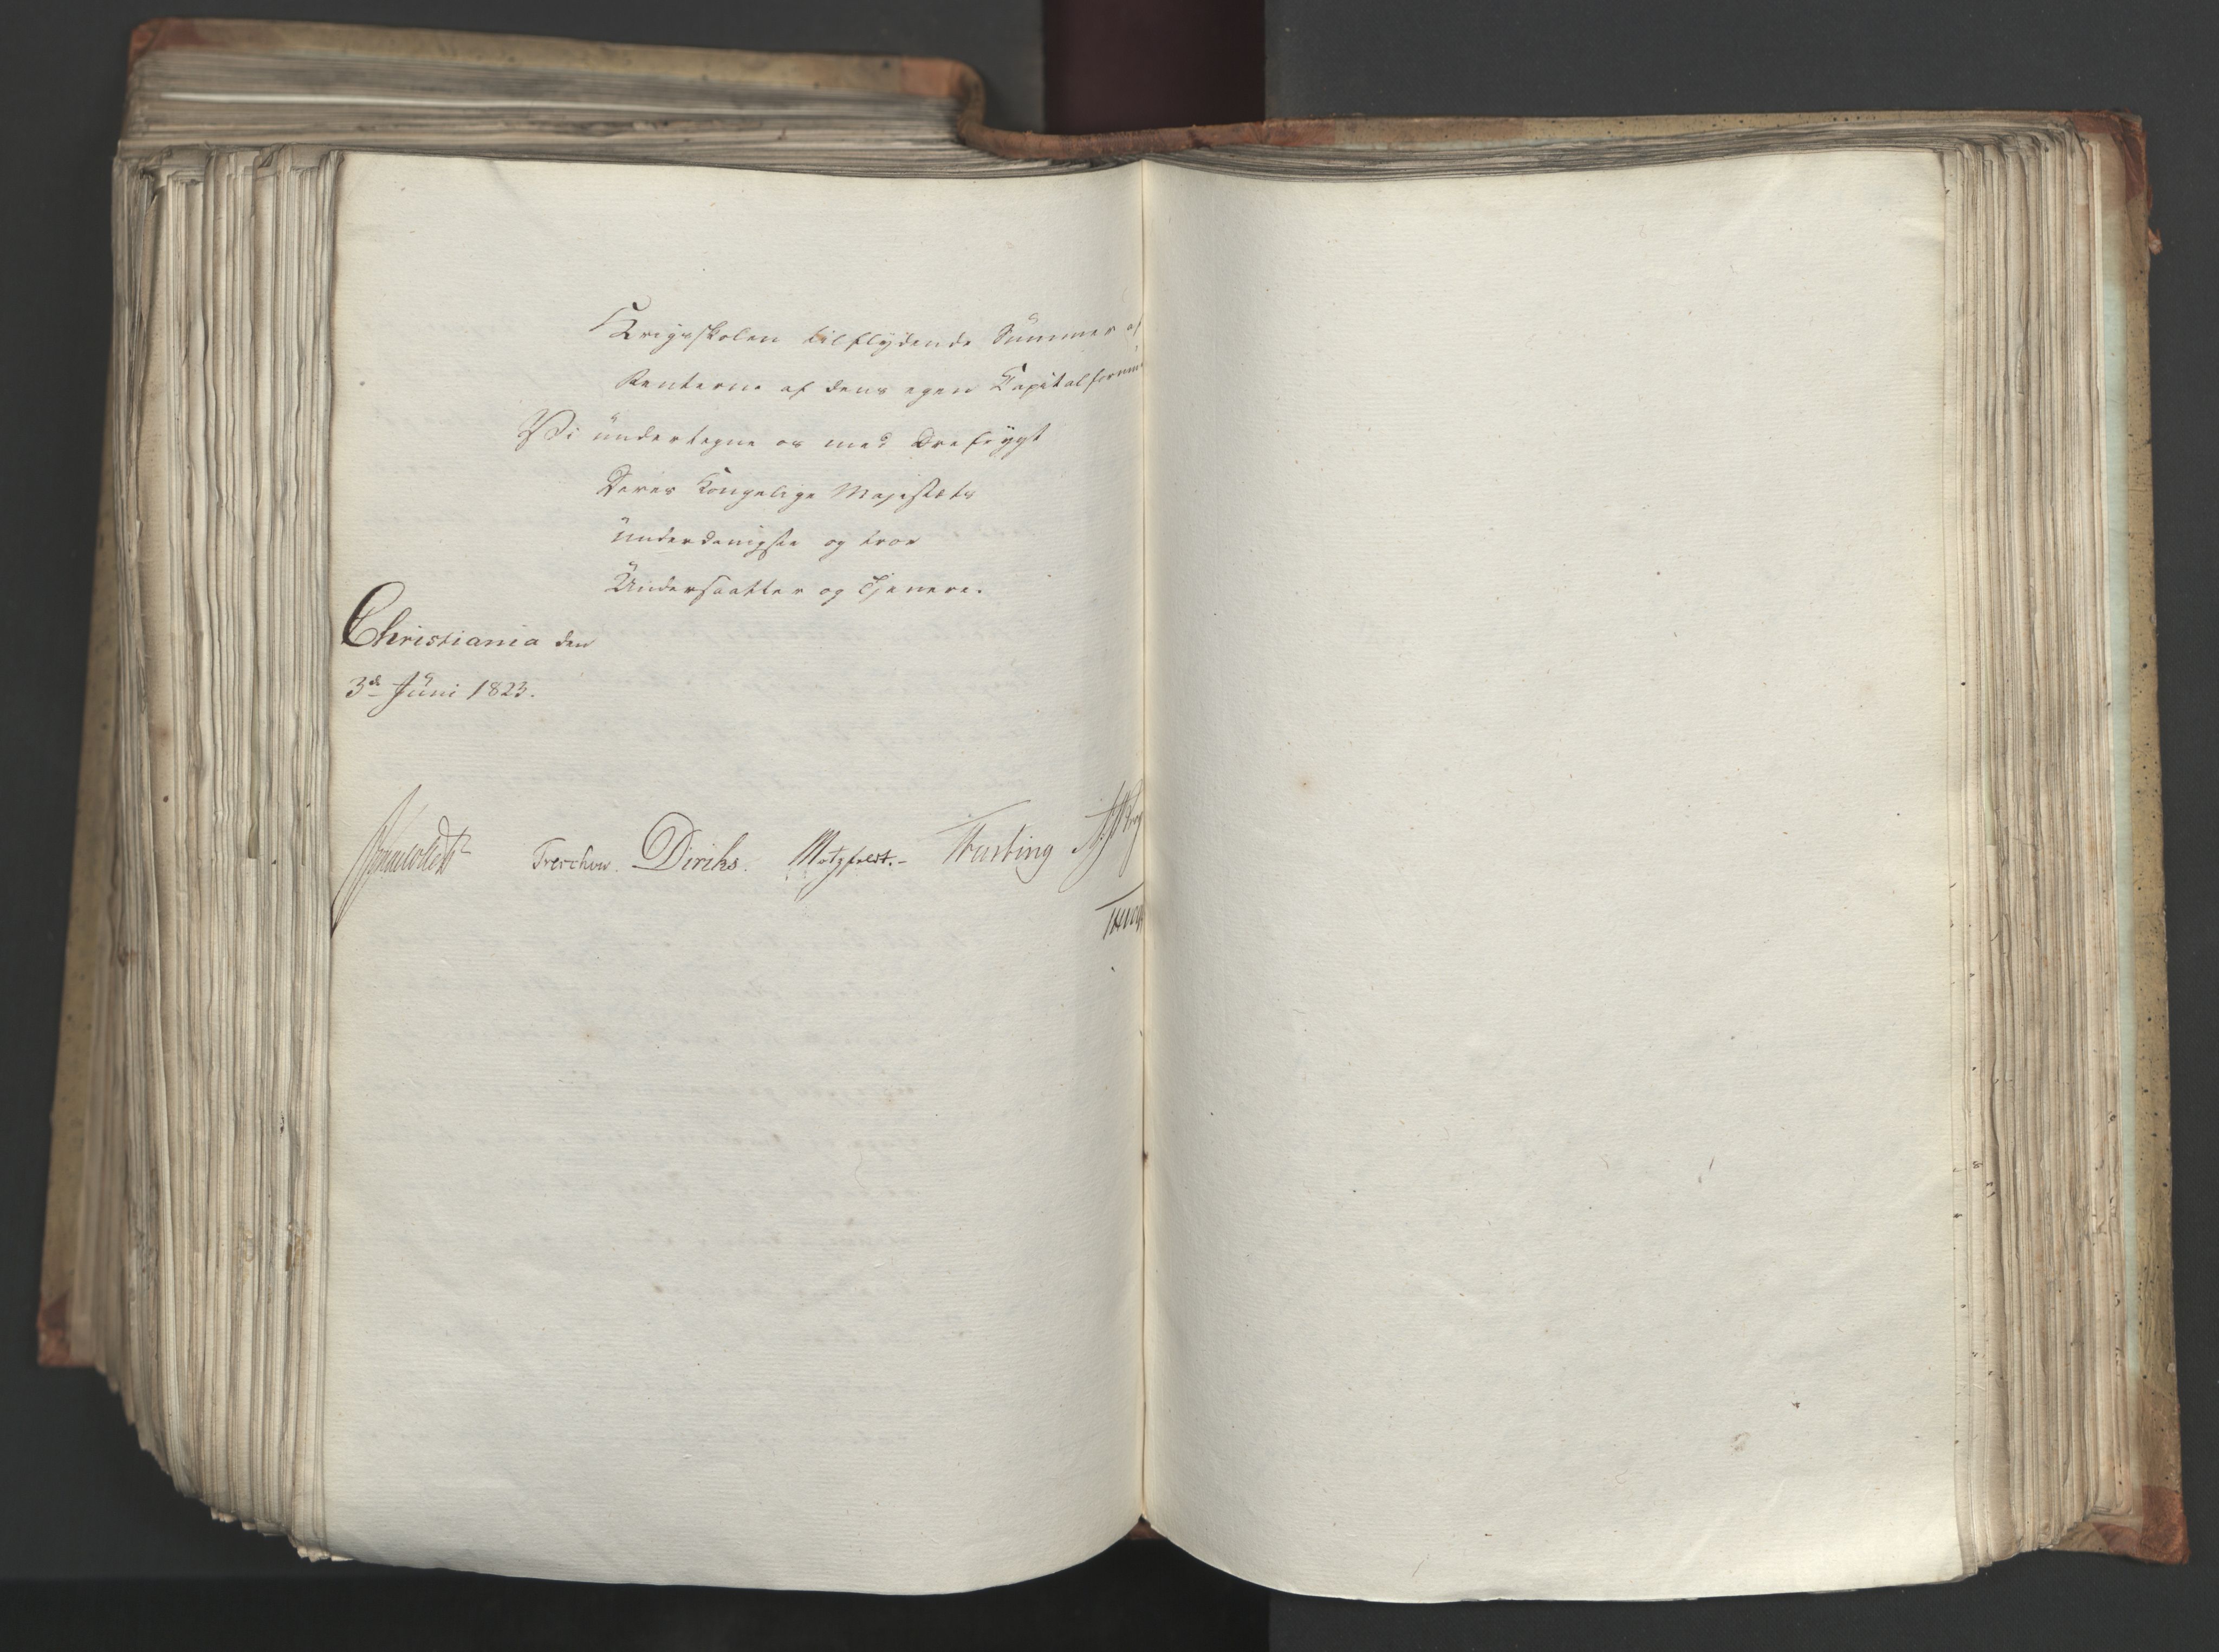 Krigsskolen tilflydende Summer af
Renterne af dens egen Capitalformue
Vi undertegne os med Ærefrygt
Deres Kongelige Majestæts
underdanigste og troe
Undersaatter og Tjenere.
Christiania den
3d Juni 1823.
Sommerhielm Treschow. Diriks. Motzfeldt.- Fasting